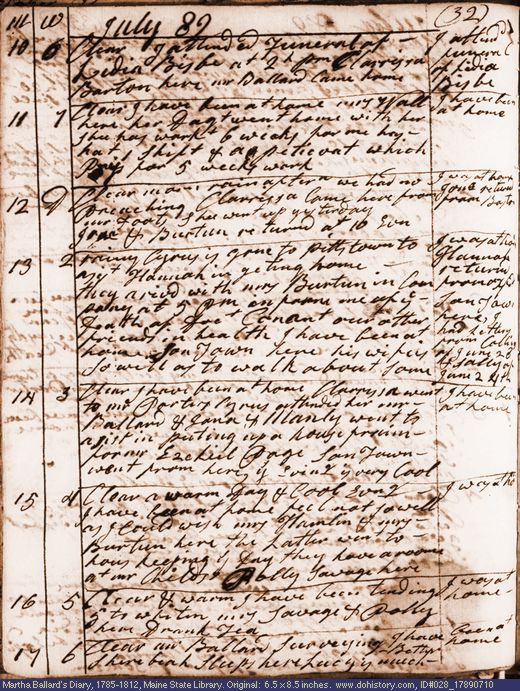 m w July 89 (32)
10 6 Clear I attended Funeral of I attend
Lidia Bisbe at 2h pm Clarissa funeral
Barton here mr Ballard Came home of Lidia
Bisbe
11 7 Clear I have been at home mrs Hall I have been
here her Dagt went home with her at home
She has workt 6 weeks for me
hat 1 Shift & a petticoat which
Pays for 5 weeks work
12 D Clear morn, rain after we had no I was at home
Preaching Clarissa Came here from Jona returnd
our Foots She went up yesterday from Boston
Jona & Burtun returned at 10 Evn
13 2 rainy Cyrus is gone to pittstown to I was at home
asist Hannah in geting home Hannah
they arivd with mrs Burtun in Com returnd
pany at 5 pm inform me of ye
Death of Doct Conant our other Son Town
friends in health I have been at here, I
home Son Town here his wife is had letters
So well as to walk about Some from
of June 28
June 24th
14 3 Clear I have been at home Clarissa went I have been
to mr Porters Cyrus attended her at home
Ballard & Jona & Manly went to
asist in puting up a house
for mr Ezekiel Page Son Town
went from here is very Cool
15 4 Clear a warm Day & Cool I was at home
I have been at home feel not so well
as I could wish mrs Hamlin & mrs
Burtun here the latter went to
hous keeping this Day they have a room
at mr Polly Savage here
16 5 Clear & warm I have been tending I was at
to mrs Savage & Polly home
here Drank Tea
17 6 Clear mr Ballard Surveying I have been at
here Sleeps here Lucy is much home
Martha Ballard's Diary, 1785-1812, Maine State Library. Original: 6.5 x 8.5 inches. www.dohistory.com, ID#028_17890710